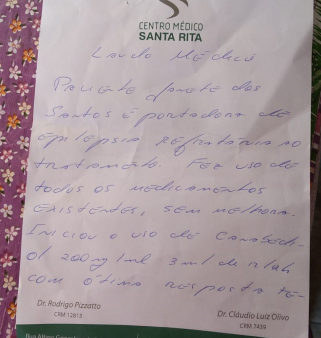 CENTRO MÉDICO
SANTA RITA
Laudo Médico
Paciente Janete dos
Santos é portadora de
epilepsia refratária ao
tratamento. Fez uso de
todos os medicamentos
existentes, sem melhora.
Iniciou o uso de Canabidi-
ol 200mg/ml 3 ml de
com ótima resposta te-
Dr. Rodrigo Pizzatto
CRM 12813
Dr. Cláudio Luiz Olivo
CRM 7439